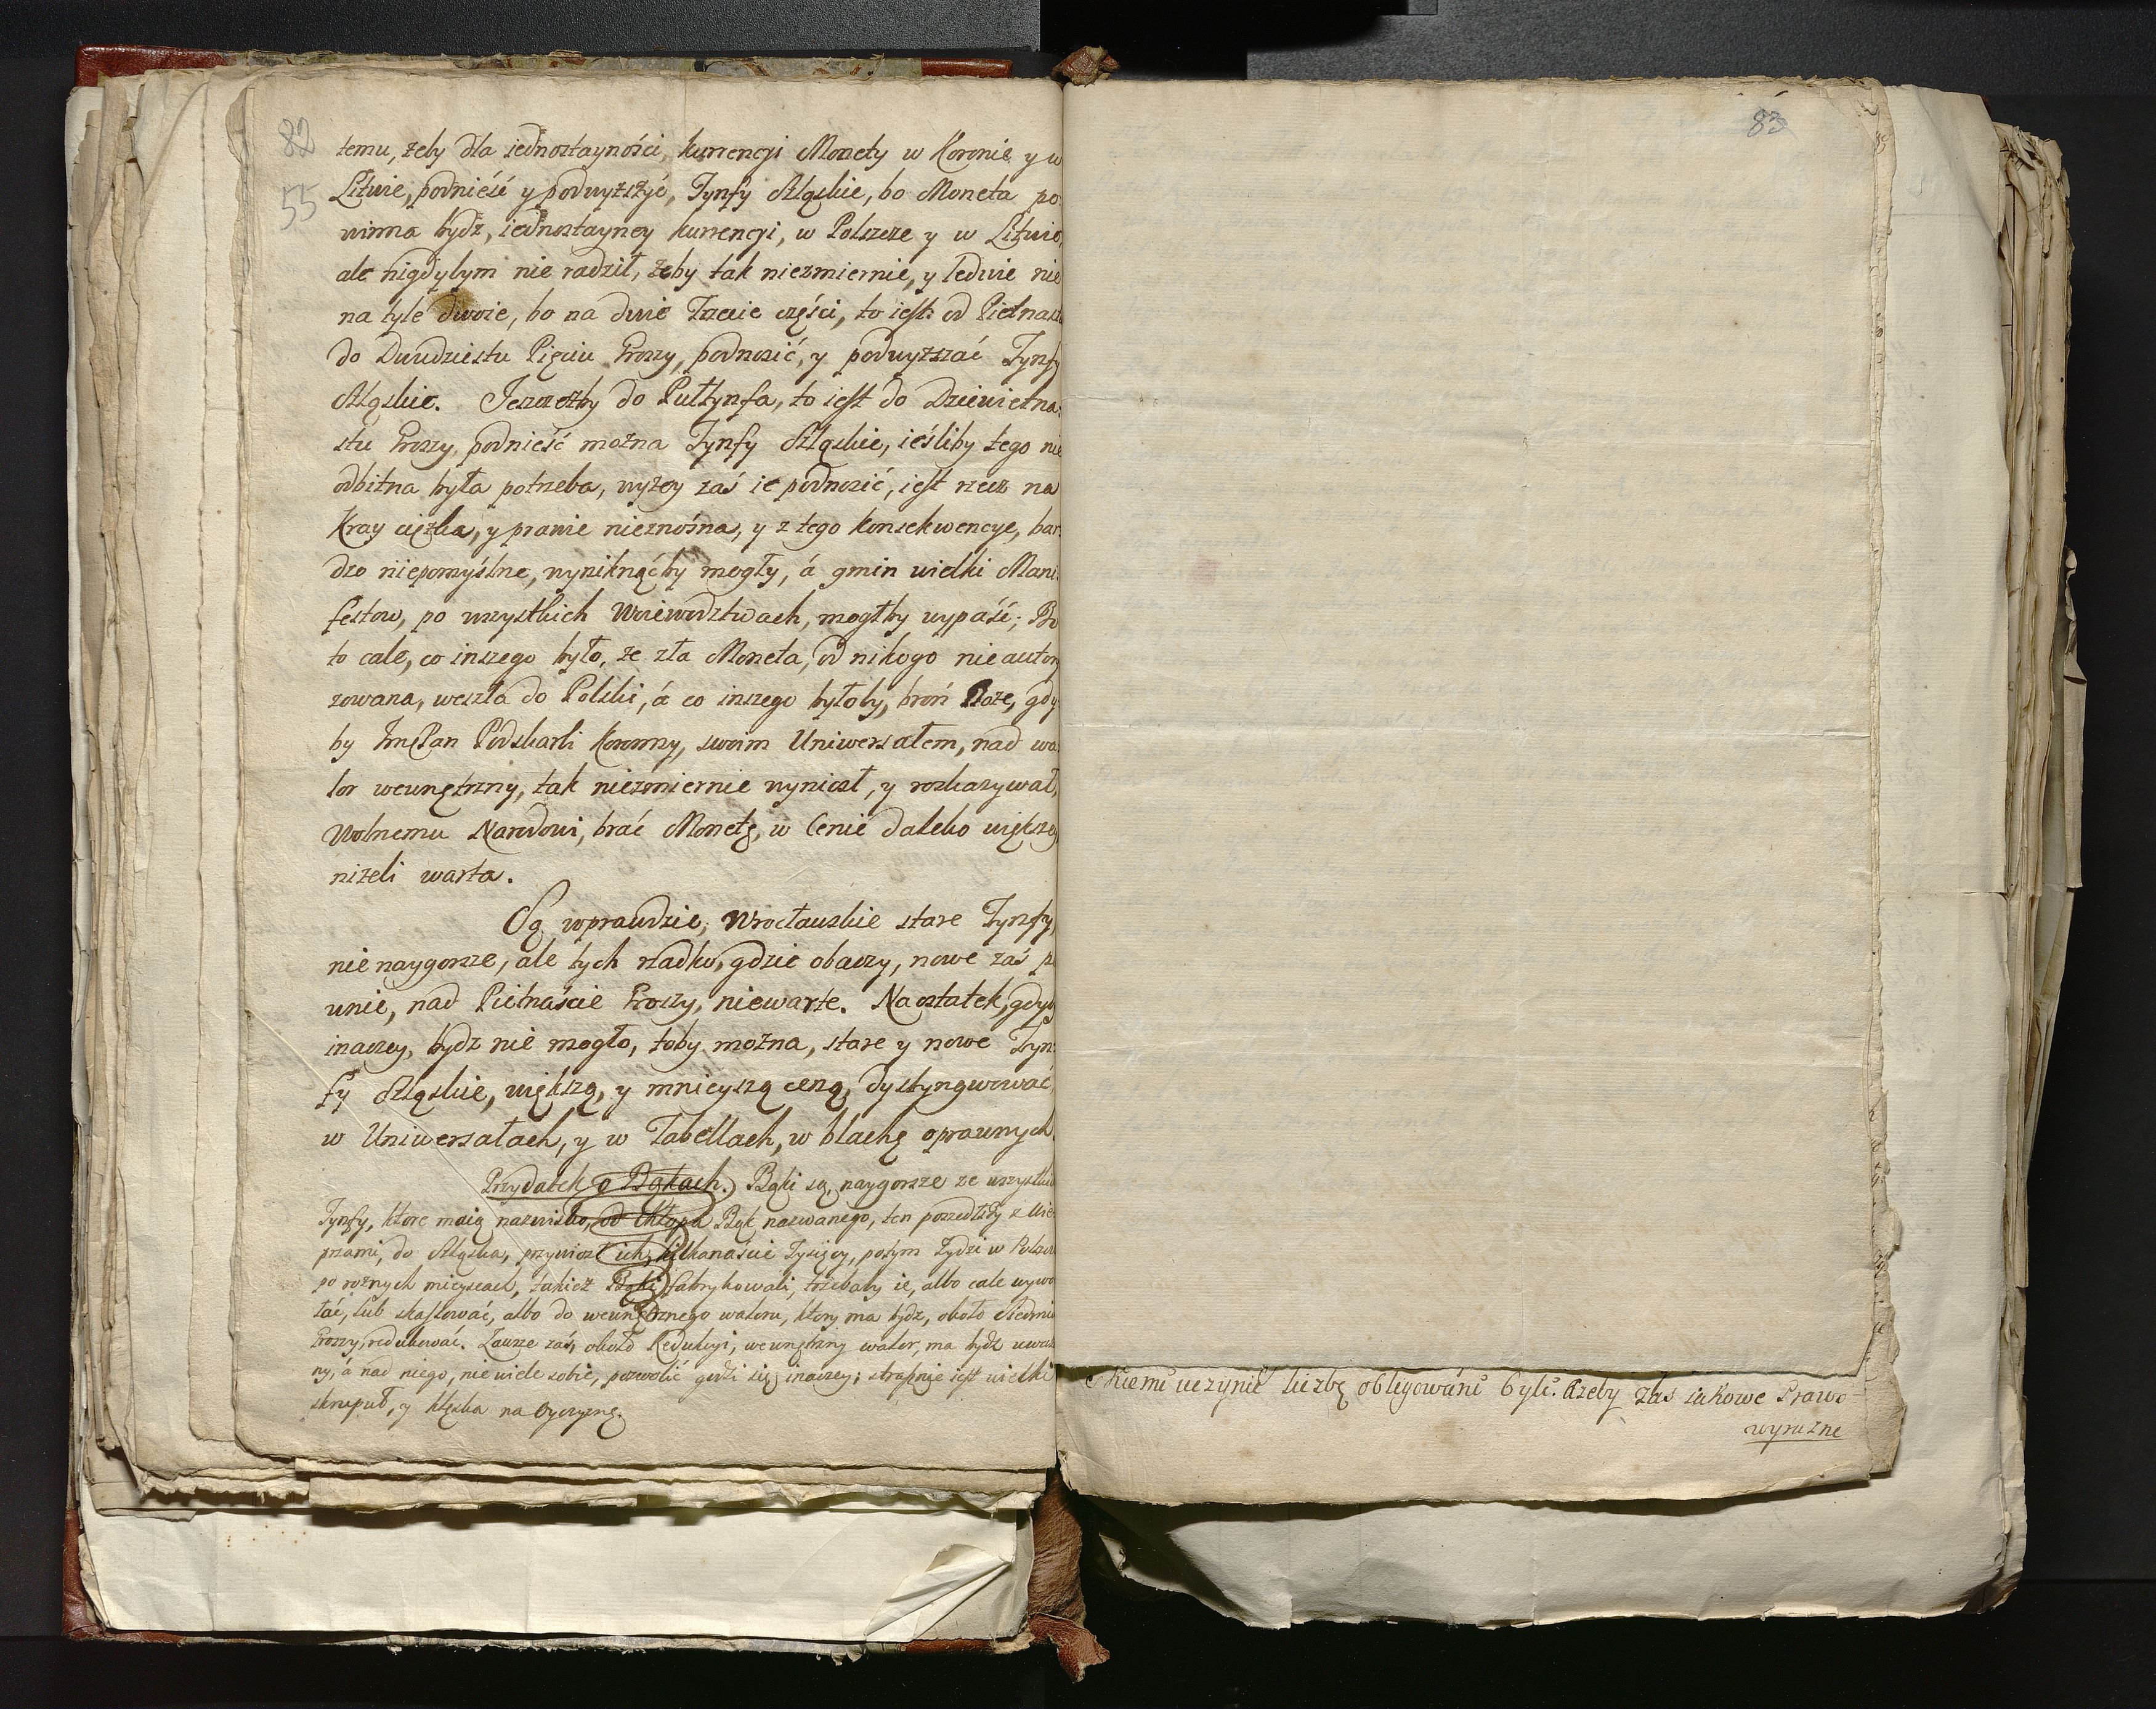 82
55
temu, żeby dla iednostayności, kurrencyi Monety w Koronie y w
Litwie, podnieść y podwyższyć, Tynfy Szląskie, bo Moneta po-
winna bydź, iednostayney kurrencyi, w Polszcze y w Litwie,
ale nigdybym nie radził, żeby tak niezmiernie, y ledwie nie
na tyle dwoie, bo na dwie Trzecie części, to iest od Pietnas
do Dwudziestu Pięciu Groszy, podnosić, y podwyższać Tynfy
Szląskie. Jeszczeby do Pułtynfa, to iest do Dziewietna-
stu Groszy, podnieść można Tynfy Szląskie, ieśliby tego nie
odbitna była potrzeba, wyżey zaś ie podnosić, iest rzecz na
Kray ciężka, y prawie nieznośna, y z tego konsekwencye, bar-
dzo niepomyślne, wyniknąćby mogły, á gmin wielki Mani-
festow, po wszystkich Woiewodztwach, mogłby wypaść; Bo
to cale, co inszego było, że zła Moneta, od nikogo nie autory
zowana, weszła do Polski, á co inszego byłoby, broń Boże, gdy
by ImcPan Podskarbi Koronny, swoim Uniwersałem, nad wa
lor wewnętrzny, tak niezmiernie wyniosł, y rozkazywał,
Wolnemu Narodowi, brać Monetę, w Cenie daleko większey
niżeli warta.
Są wprawdzie, Wrocławskie stare Tynfy,
nie naygorsze, ale tych rzadko, gdzie obaczy, nowe zaś p
wnie, nad Pietnaście Groszy, niewarte. Na ostatek, gdyb
inaczey, bydz nie mogło, toby można, stare y nowe Tyn-
fy Szląskie, większą, y mnieyszą ceną, dystyngwować,
w Uniwersałach, y w Tabellach, w blachę oprawnych.
Przydatek o Bąkach. Bąki są, naygorsze ze wszystkich
Tynfy, ktore maią nazwisko, od Chłopa Bąk nazwanego, ten poszedłszy z Wie-
przami, do Szląska, przywiozł ich, kilkanaście Tysięcy, potym Żydzi w Polszcze
po rożnych mieyscach, takież Bąki fabrykowali, trzebaby ie, albo cale wywo
łać, lub skassować, albo do wewnętrznego waloru, ktory ma bydz, około Siedmiu
Groszy, redukować. Zawsze zaś, około Redukcyi, wewnętrzny walor, ma bydź uważ
ny, á nad niego, nie wiele sobie, pozwolić godzi się, inaczey; strasznie iest wielki
skrupuł, y klęska na Oyczyznę.
83
skiemu uczynić liczbę obligowani byli. Ażeby zas takowe Prawo
wyrazne